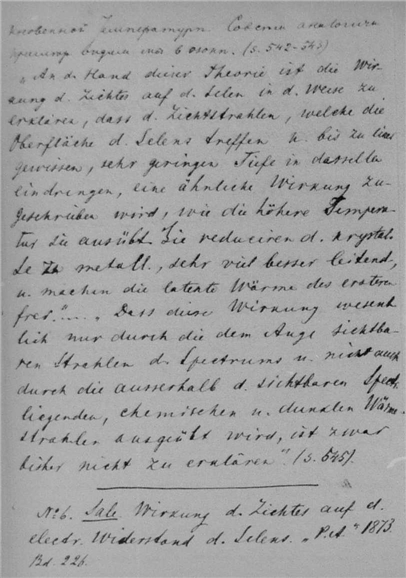 температури.
(S. 542-543)
„An d. Hand dieser Theorie ist die Wir-
kung d. Lichtes auf d. Selen in d. Weise zu
erklären, dass d. Lichtstrahlen, welche die
Oberfläche d. Selens treffen u. bis zu einer
gewissen, sehr geringen Tiefe in dasselbe
eindringen, eine ähnliche Wirkung zu-
geschrieben wird, wie die höhere Tempera-
tur sie ausübt. Sie reduciren d. krystal.
Se zu metall., sehr viel besser leitend,
u. machen die latente Wärme des ersteren
frei."... „Dass diese Wirkung wesent-
lich nur durch die dem Auge sichtba-
ren Strahlen d. Spectrums u. nicht auch
durch die ausserhalb d. sichtbaren Spect.
liegenden, chemischen u. dunklen Wärm.
strahlen ausgeübt wird, ist zwar
bisher nicht zu erklären" (S. 545).
№6. Sale Wirkung d. Lichtes auf d.
electr. Widerstand d. Selens. „P.A." 1873
Bd. 226.